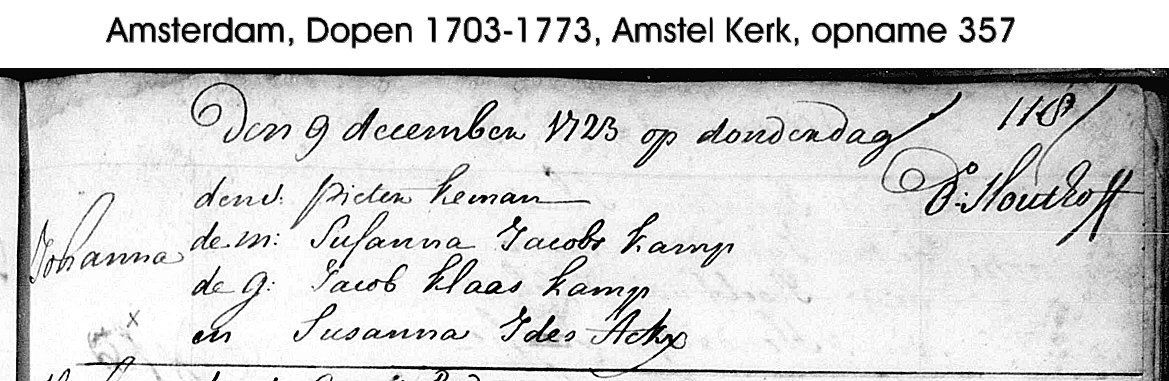 Amsterdam, Dopen 1703-1773, Amstel Kerk, opname 357
118
Den 9 december 1723 op donderdag
Do: Houthoff
Johanna
den v: Pieter Keman
de m: Susanna Jacobs Kamp
de g: Jacob Klaas Kamp
en Susanna Ides Ackx